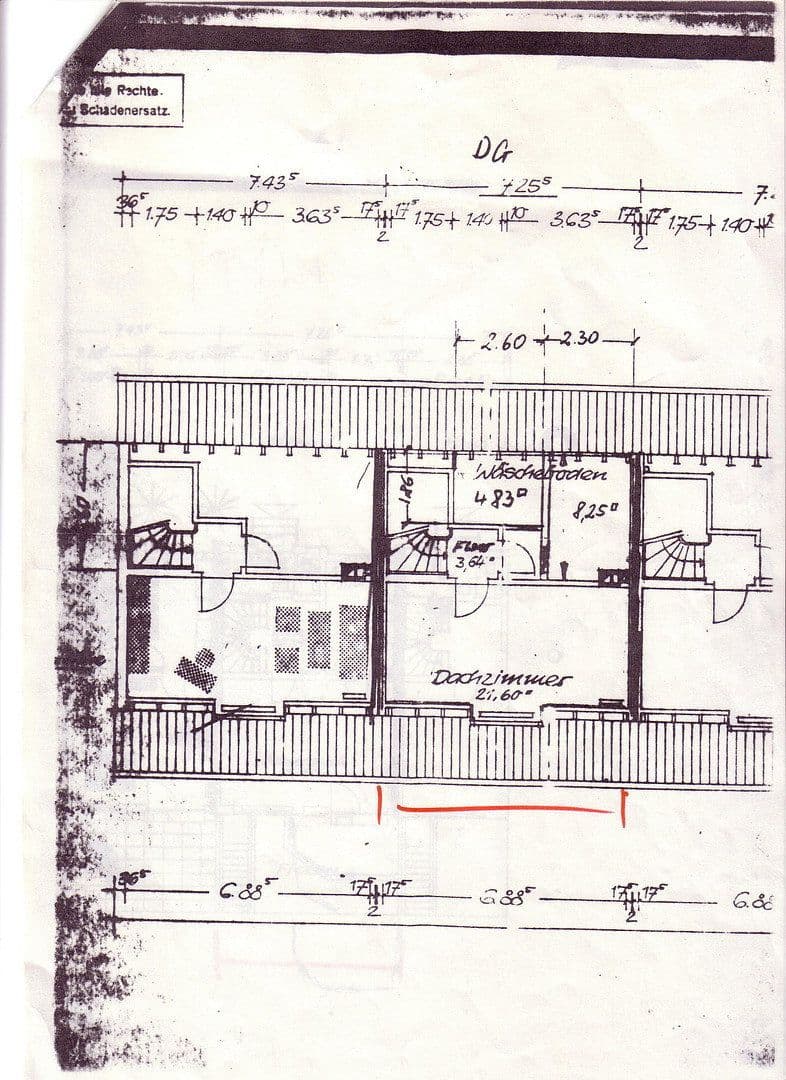 alle Rechte.
Schadenersatz.
DG
7.43⁵ 7.25⁵ 7.
36⁵ 1.75 1.40 10 3.63⁵ 17⁵ 17⁵ 1.75 1.40 10 3.63⁵ 17⁵ 17⁵ 1.75 1.40
2 2
2.60 2.30
Wäscheboden
4.83
8,25
1.86
Flur
3,64
Dachzimmer
21,60
36⁵ 6.88⁵ 17⁵ 17⁵ 6.88⁵ 17⁵ 17⁵ 6.88
2 2